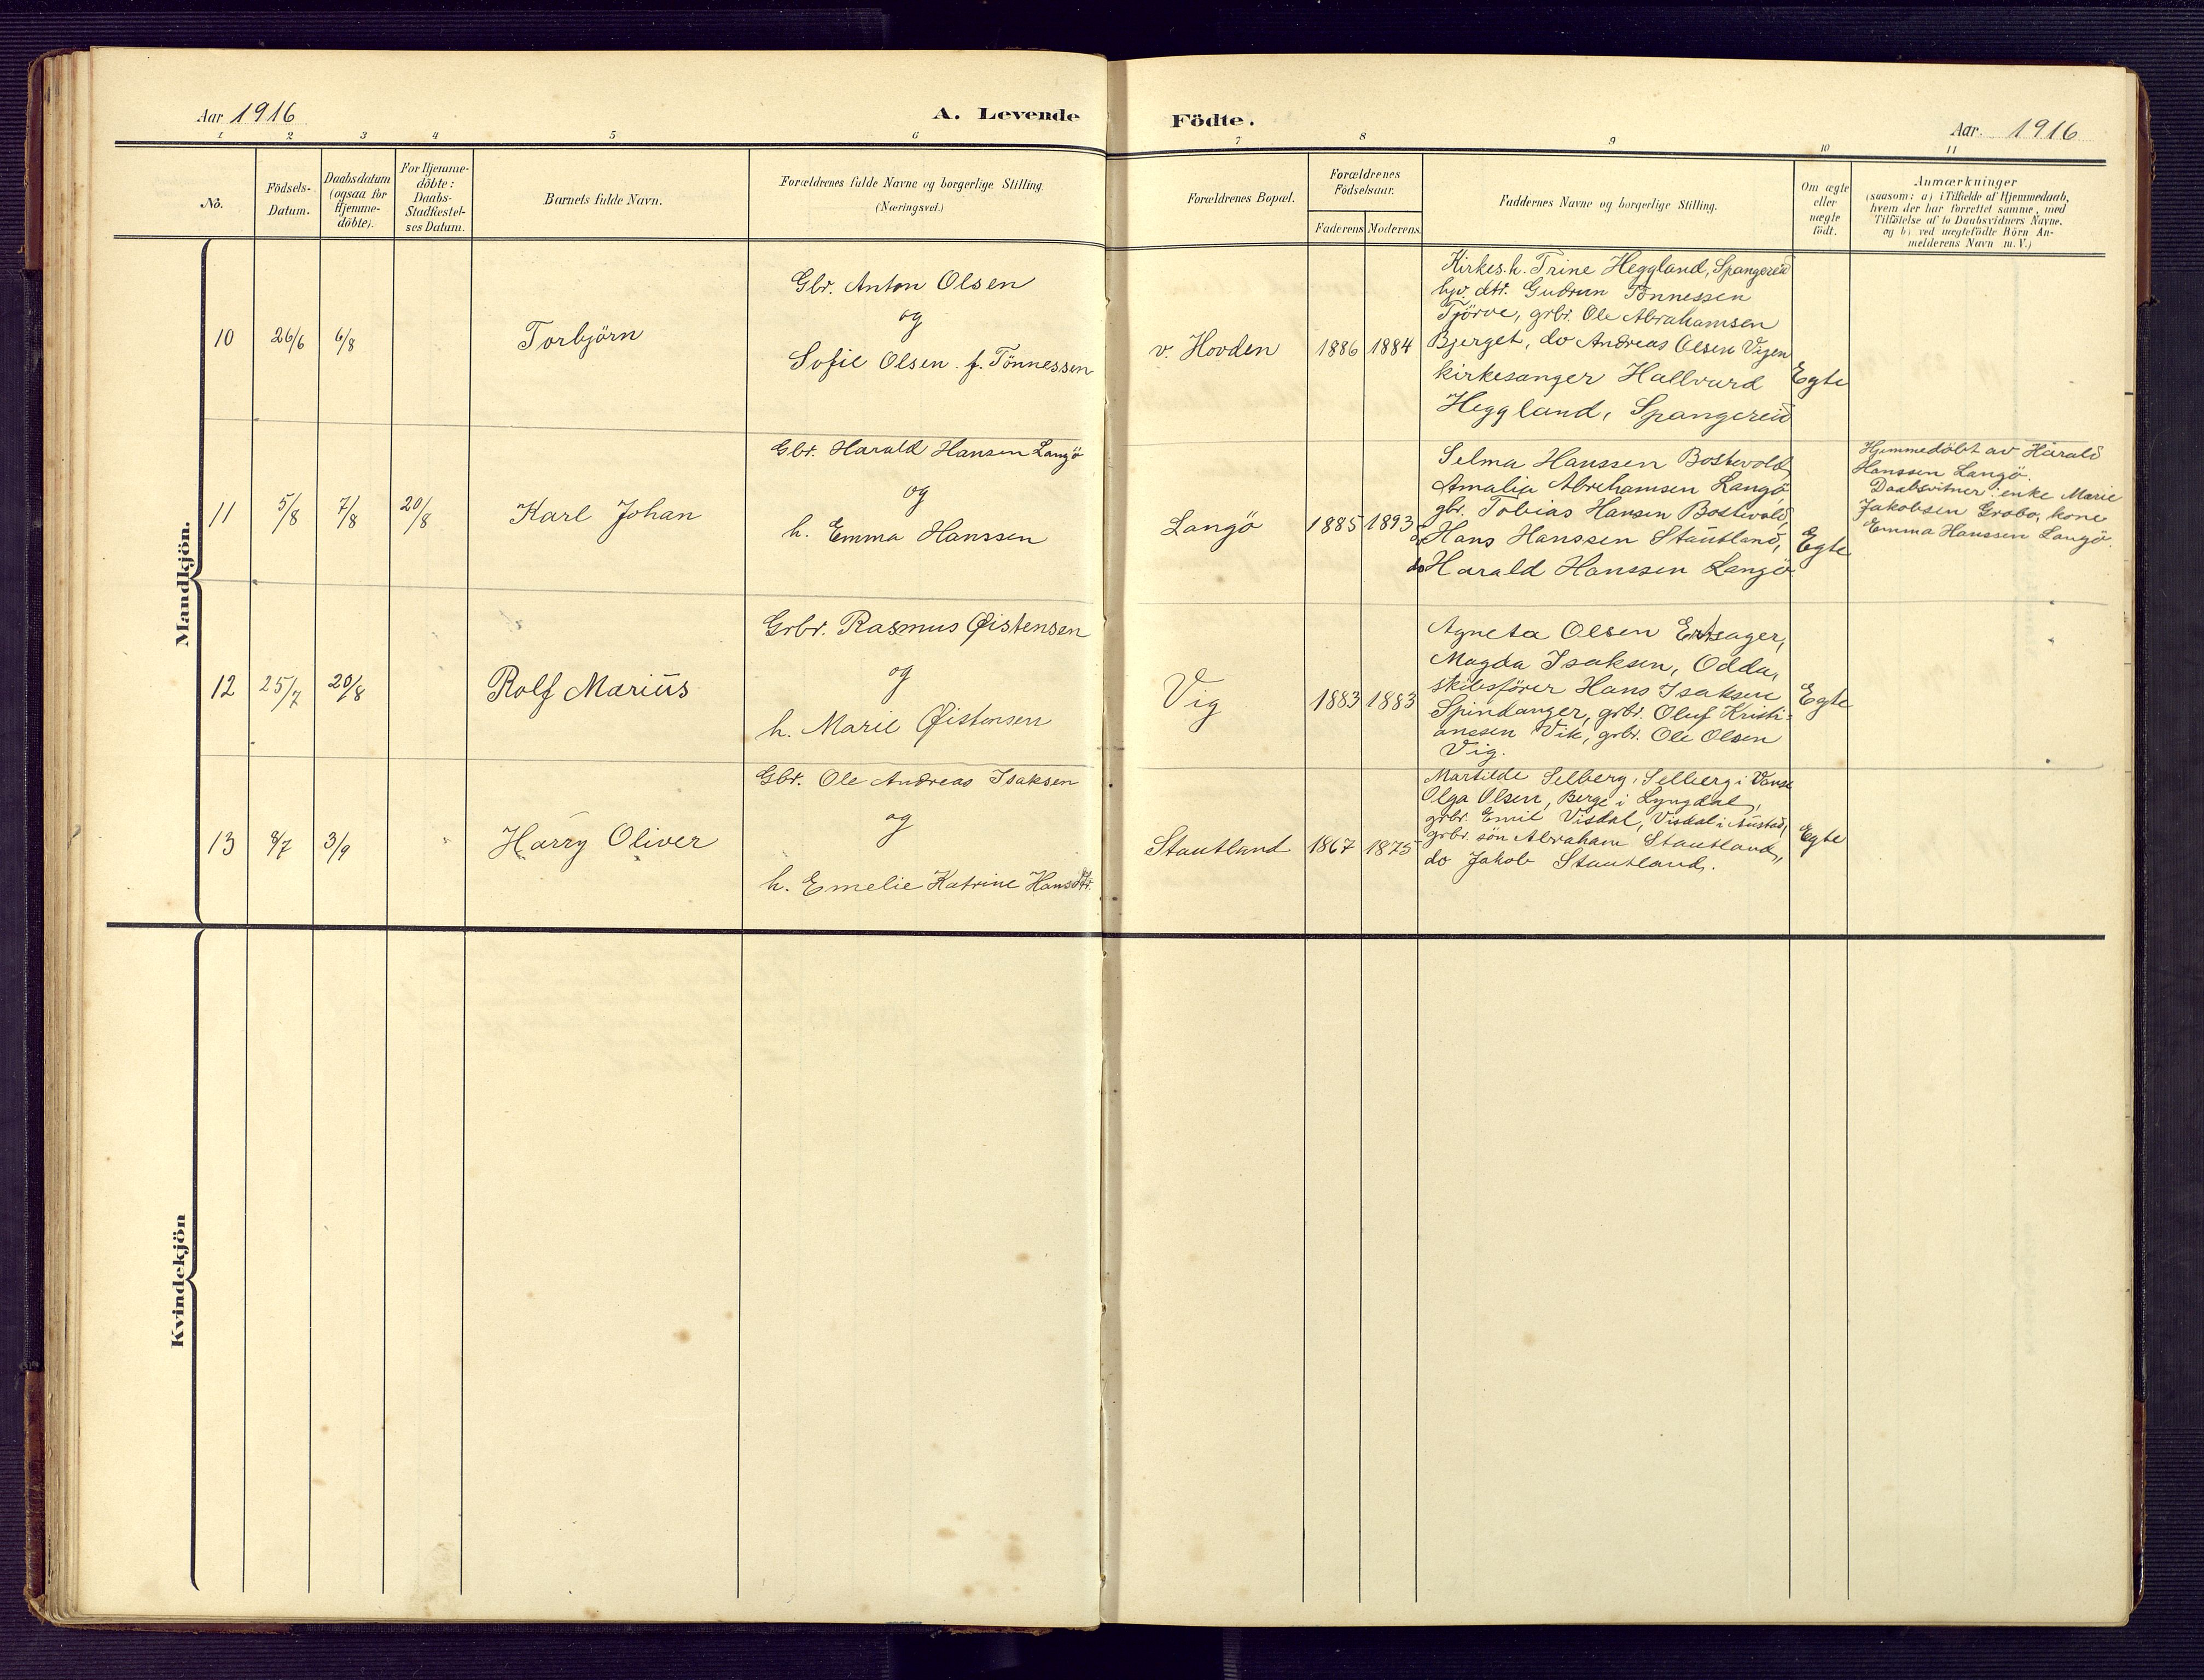 Aar 1916
A. Levende Födte.
Aar. 1916
1 2 3 4 5 6 7 8 9 10 11
No.
Födsels-
Datum.
Daabsdatum
(ogsaa for
Hjemme-
döbte).
For Hjemme-
döbte:
Daabs-
Stadfæstel-
ses Datum.
Barnets fulde Navn.
Forældrenes fulde Navne og borgerlige Stilling
(Næringsvei.)
Forældrenes Bopæl.
Forældrenes
Födselsaar.
Faderens Moderens
Faddernes Navne og borgerlige Stilling.
Om ægte
eller
uægte
födt.
Anmærkninger
(saasom: a) i Tilfælde af Hjemmedaab,
hvem der har forrettet samme, med
Tilföielse af to Daabsvidners Navne.
og b) ved uægtefödte Börn An-
melderens Navn m. V.)
Mandkjön.
10
26/6
6/8
Torbjörn
Gbr. Anton Olsen
og
Sofie Olsen f. Tönnessen
v. Hovden
1886
1884
Kirkes. h. Trine Heggland, Spangereid
dtr. Gudrun Tönnessen
Tjörve, grbr. Ole Abrahamsen
Bjerget, do Andreas Olsen Vigen
kirkesanger Hallvard
Heggland, Spangereid
Egte
11
5/8
7/8
20/8
Karl Johan
Gbr. Harald Hansen Langö
og
h. Emma Hanssen
Langö
1885
1893
Selma Hanssen Bostvold,
Amalia Abrahamsen Langö,
gbr. Tobias Hansen Bostvold,
do Hans Hanssen Stautland,
do Harald Hanssen Langö
Egte
Hjemmedöbt av Harald
Hanssen Langö.
Daabsvitner: enke Marie
Jakobsen Grobo, kone
Emma Hanssen Langö.
12
25/7
20/8
Rolf Marius
Grbr. Rasmus Øistensen
og
h. Marie Øistensen
Vig
1883
1883
Agneta Olsen Ertsager,
Magda Isaksen, Odda,
skibsförer Hans Isaksen
Spindanger, grbr. Oluf Kristi-
anssen Vik, grbr. Ole Olsen
Vig.
Egte
13
9/7
3/9
Harry Oliver
Gbr. Ole Andreas Isaksen
og
h. Emelie Katrine Hansdtr.
Stautland
1867
1875
Martilde Selberg, Selberg i Vanse
Olga Olsen, Berge i Lyngdal,
grbr. Emil Visdal, Visdal i Austad,
grbr. sön Abraham Stautland,
do Jakob Stautland.
Egte
Kvindekjön